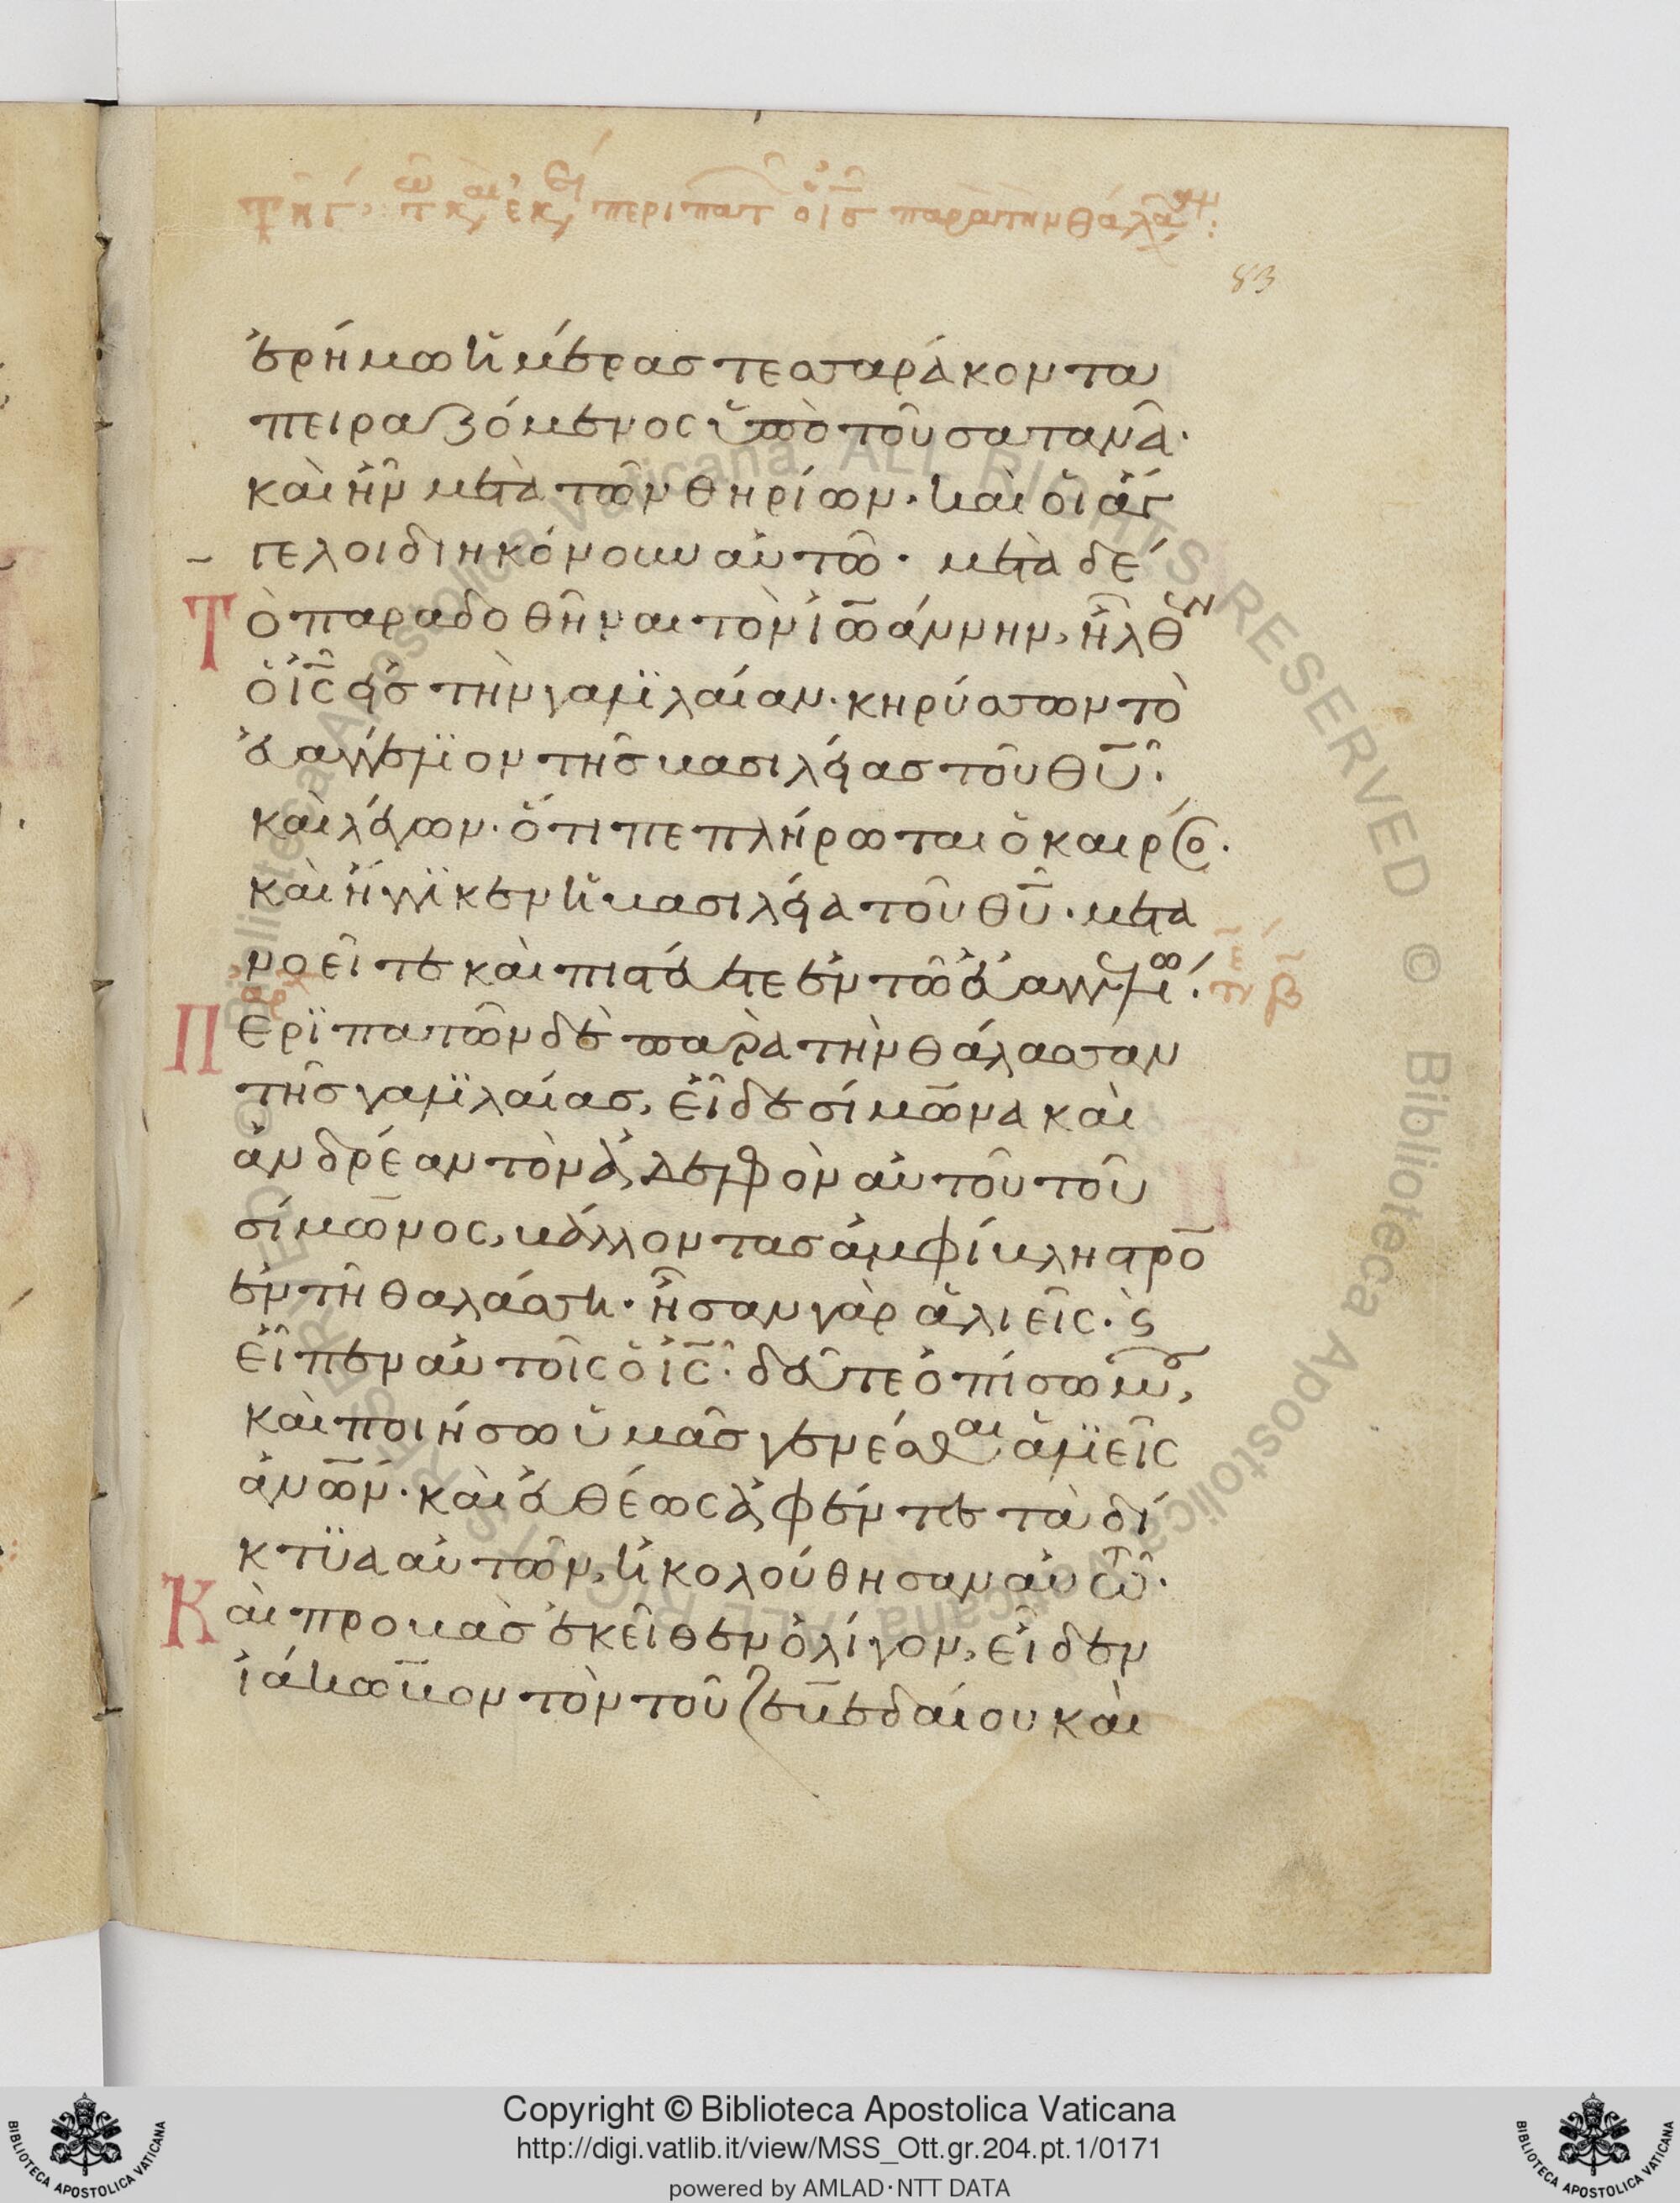 83
ἐρήμω ἡμέρας τεσσαράκοντα
πειραζόμενος ὑπὸ τοῦ σατανᾶ·
καὶ ἦν μετὰ τῶν θηρίων· καὶ οἱ ἄγ
γελοι διηκόνουν αὐτῶ· μετὰ δέ
Τὸ παραδοθῆναι τὸν ἰωάννην, ἦλθεν
ὁ ἰς εἰς τὴν γαλιλαίαν· κηρύσσων τὸ
εὐαγγέλιον τῆς βασιλείας τοῦ θυ·
καὶ λέγων· ὅτι πεπλήρωται ὁ καιρός·
καὶ ἤγγικεν ἡ βασιλεία τοῦ θυ· μετα
νοεῖτε καὶ πιστεύετε ἐν τῶ εὐαγγελίω·
Περϊπατῶν δὲ παρὰ τὴν θάλασσαν
τῆς γαλιλαίας, εἶδε σίμωνα καὶ
ἀνδρέαν τὸν ἀδελφὸν αὐτοῦ τοῦ
σίμωνος, βάλλοντας ἀμφίβληστρο
ἐν τῆ θαλάσση· ἦσαν γὰρ ἁλιεῖς· ϛ
εἶπεν αὐτοῖς ὁ ἰς· δεῦτε ὀπίσω μου,
καὶ ποιήσω ὑμᾶς γενέσθαι ἁλιεῖς
ἀνων· καὶ εὐθέως ἀφέντες τὰ δί
κτϋα αὐτῶν, ἠκολούθησαν αὐτῶ·
Καὶ προβὰς ἐκεῖθεν ὀλίγον, εἶδεν
ἰάκωβον τὸν τοῦ ζεβεδαίου καὶ
Copyright © Biblioteca Apostolica Vaticana
http://digi.vatlib.it/view/MSS_Ott.gr.204.pt.1/0171
powered by AMLAD·NTT DATA
BIBLIOTECA APOSTOLICA VATICANA
BIBLIOTECA APOSTOLICA VATICANA